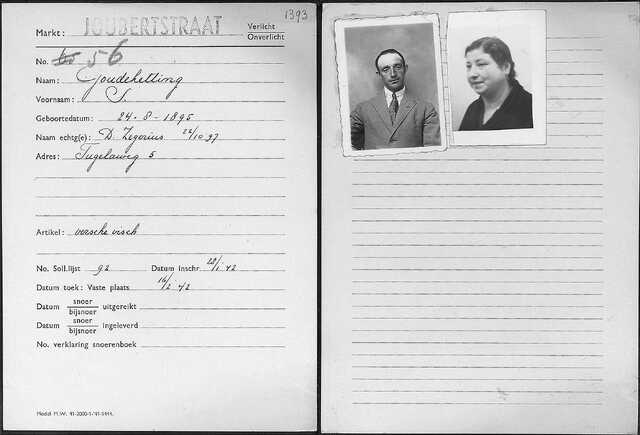 1393
Markt: JOUBERTSTRAAT Verlicht
Onverlicht
No. 56
Naam: Goudeketting
Voornaam: S.
Geboortedatum: 24-8-1895
Naam echtg(e): D. Zegerius 22/10 97
Adres: Tugelaweg 5
Artikel: versche visch
No. Soll.lijst 92 Datum inschr. 22/1 42
Datum toek: Vaste plaats 16/2 42
Datum snoer/bijsnoer uitgereikt
Datum snoer/bijsnoer ingeleverd
No. verklaring snoerenboek
Model M.W.